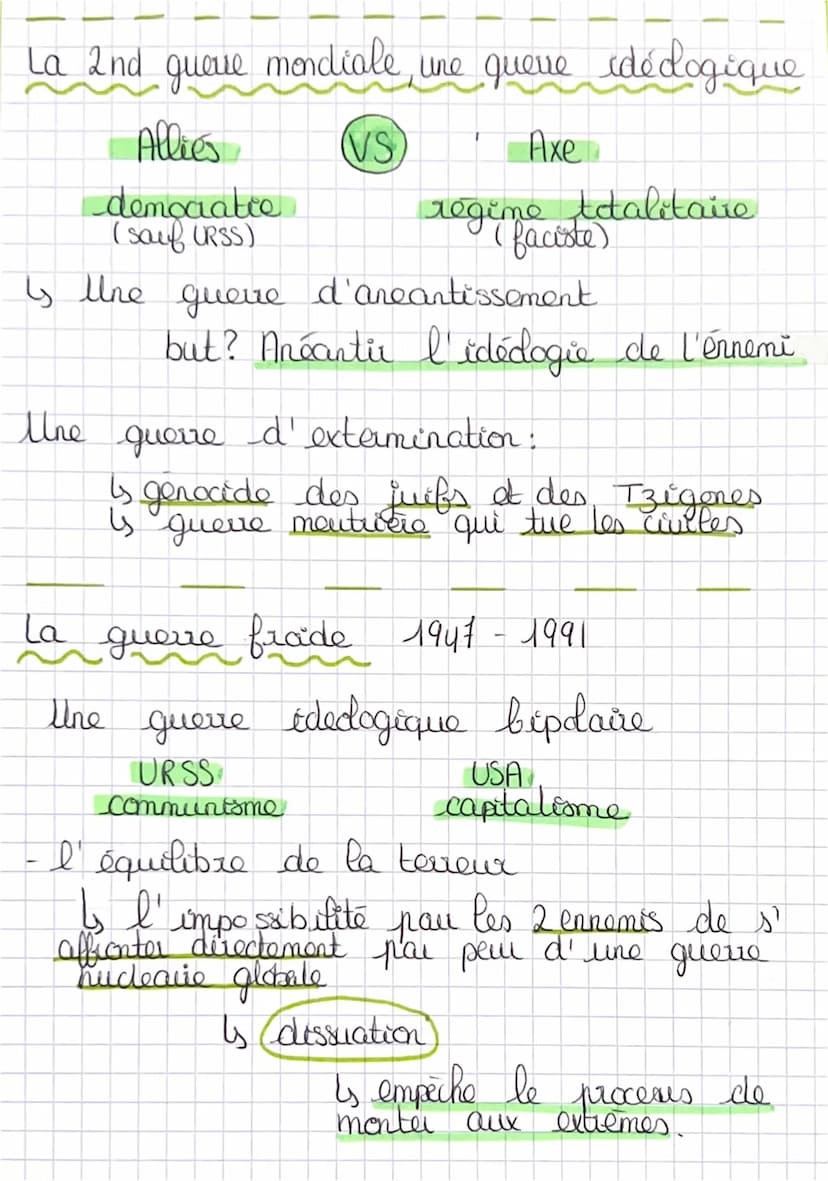 La 2nd guerre mondiale, une guerre idéologique
Alliés VS Axe
démocratie régime totalitaire
(sauf URSS) (faciste)
↳ Une guerre d'anéantissement
but? Anéantir l'idéologie de l'énnemi
Une guerre d'extermination :
↳ génocide des juifs et des Tziganes
↳ guerre meutrière qui tue les civiles
La guerre froide 1947 - 1991
Une guerre idéologique bipolaire
URSS USA
communisme capitalisme
- l'équilibre de la terreur
↳ l'impossibilité pau les 2 ennemis de s'
affronter directement par peur d'une guerre
nucléaire globale
↳ dissuation
↳ empêche le procesus de
monter aux extrêmes.